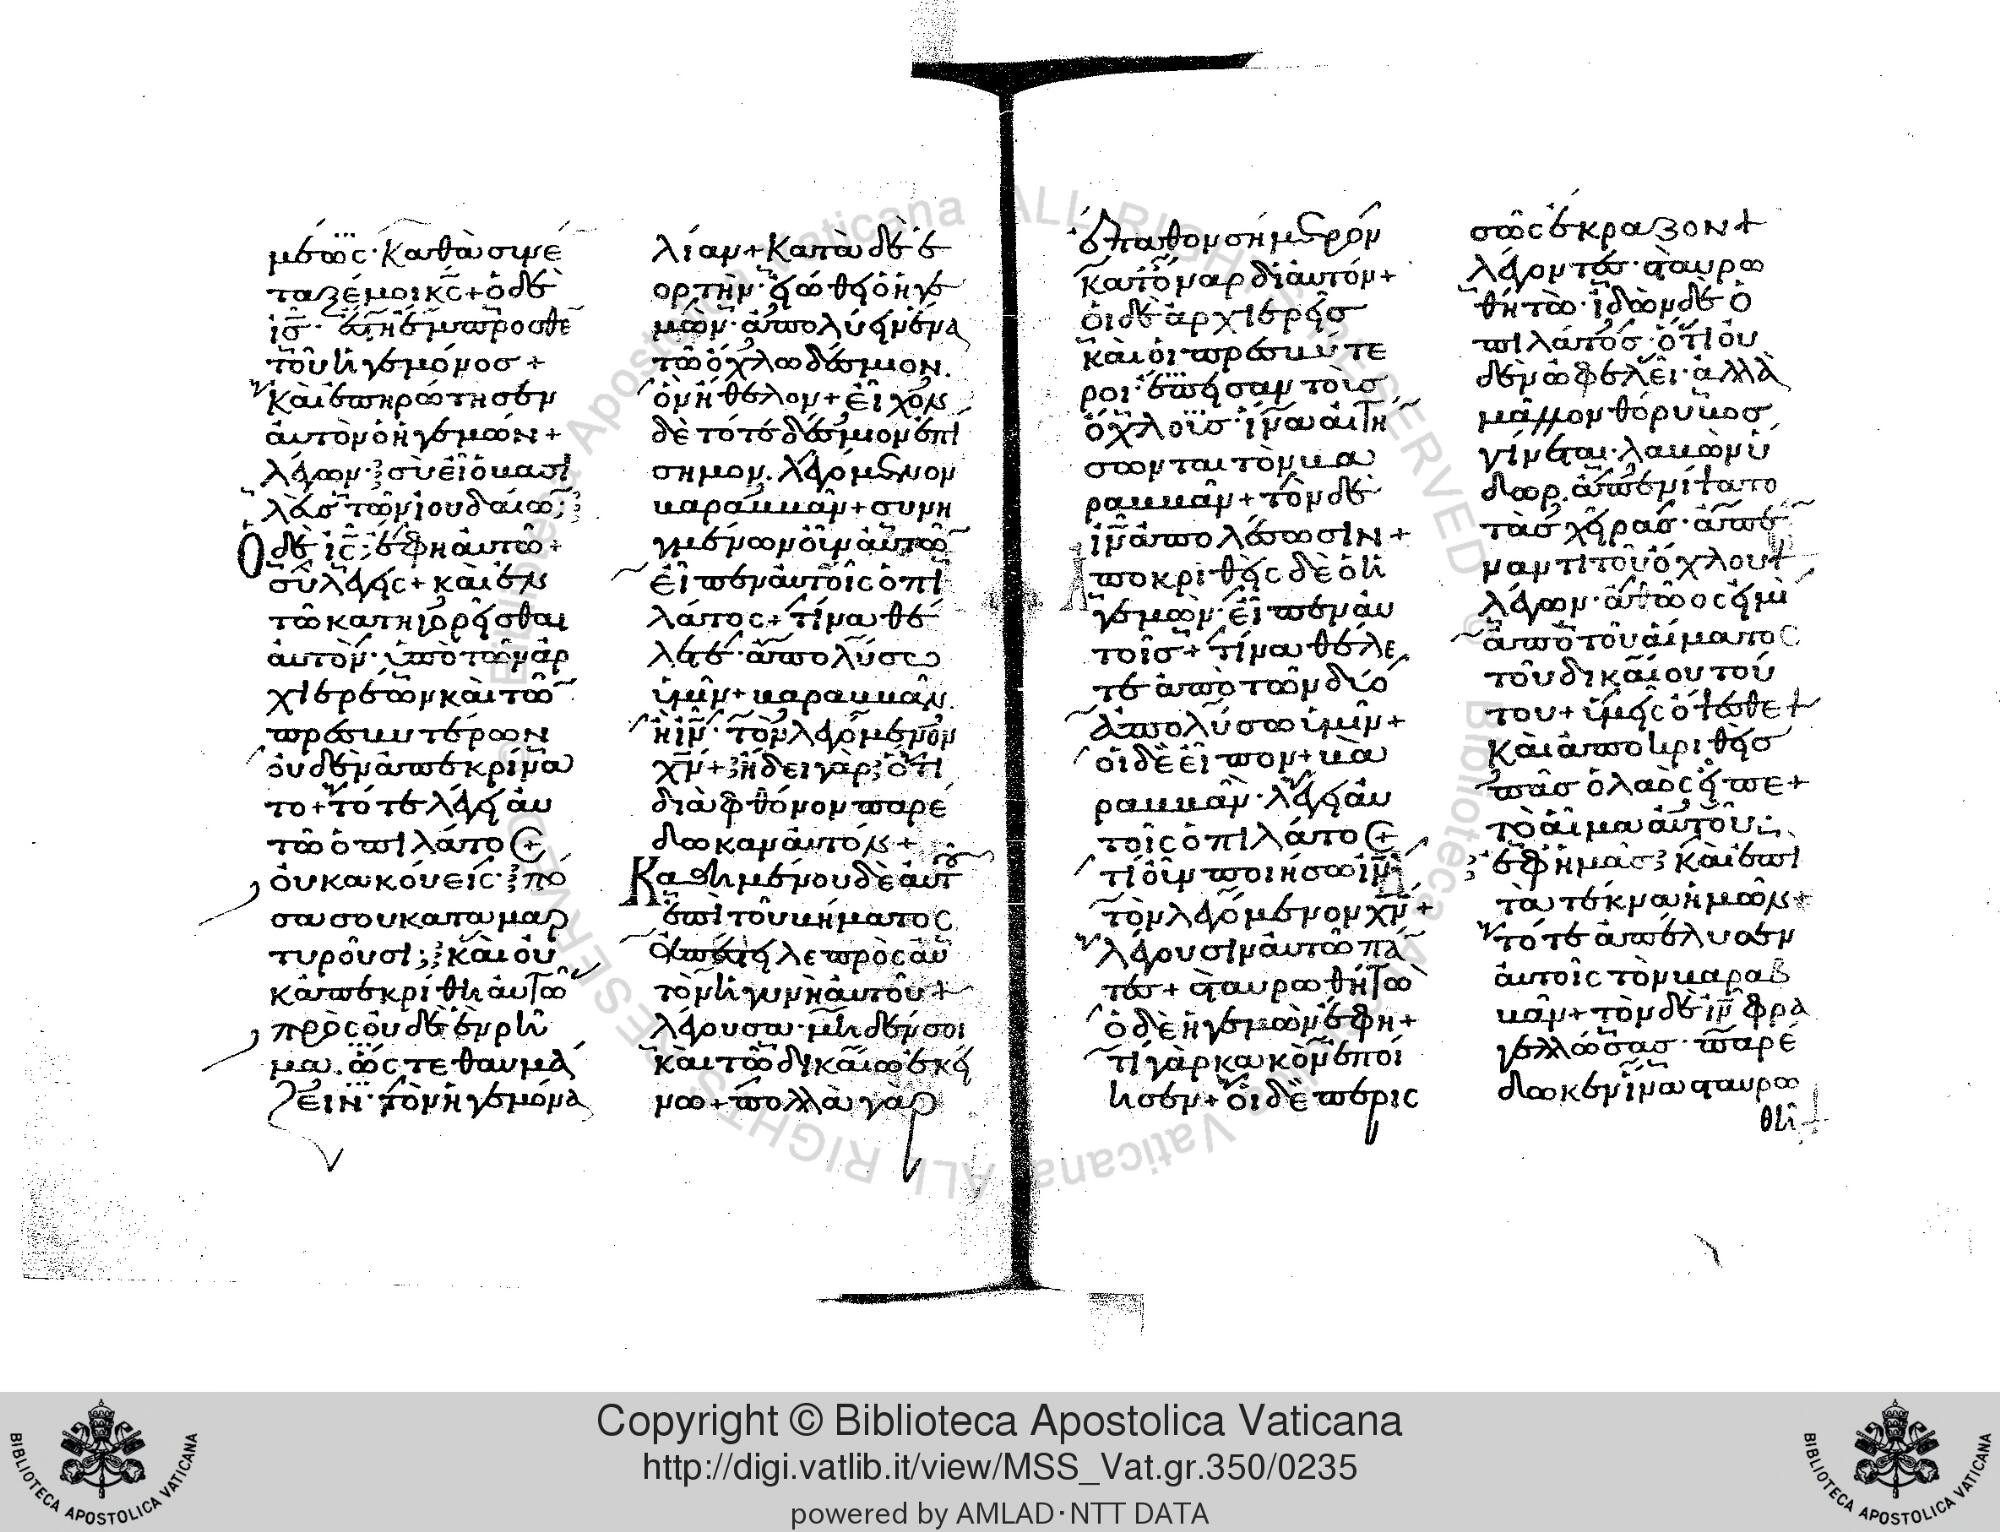 μέως· καθὰ συνέ
ταξέ μοι κς + ὁ δὲ
ις· ἔστη ἔμπροσθε
τοῦ ἡγεμόνος +
καὶ ἐπηρώτησεν
αὐτὸν ὁ ἡγεμὼν +
λέγων· σὺ εἶ ὁ βασι
λεὺς τῶν ἰουδαίων;
Ὁ δὲ ις ἔφη αὐτῶ +
σὺ λέγεις + καὶ ἐν
τῶ κατηγορεῖσθαι
αὐτὸν· ὑπὸ τῶν ἀρ
χιερέων καὶ τῶν
πρεσβυτέρων
οὐδὲν ἀπεκρίνα
το + τότε λέγει αυ
τῶ ὁ πιλάτος +
οὐκ ἀκούεις· πό
σα σου καταμαρ
τυροῦσι; καὶ οὐ
κ ἀπεκρίθη αὐτῶ
πρὸς οὐδὲ ἐν ρη
μα. ὥστε θαυμά
ζειν· τὸν ἡγεμόνα
λίαν + Κατὰ δὲ ἑ
ορτὴν· εἰώθει ὁ ἡγε
μὼν· ἀπολύειν ἕνα
τῶ ὄχλω δέσμιον.
ὃν ἤθελον + εἶχον
δὲ τότε δέσμιον ἐπί
σημον. λεγόμενον
βαραββᾶν + συνη
γμένων οὖν αὐτῶν
εἶπεν αὐτοῖς ὁ πι
λάτος + τίνα θέ
λετε· ἀπολύσω
ὑμῖν + βαραββᾶν.
ἢ ιν· τὸν λεγόμενον
χν + ἤδει γὰρ ὅτι
διὰ φθόνον παρέ
δωκαν αὐτόν +
Καθημένου δὲ αὐτοῦ
ἐπὶ τοῦ βήματος
ἀπέστειλε πρὸς αὐ
τὸν ἡ γυνὴ αὐτοῦ +
λέγουσα· μηδὲν σοι
καὶ τῶ δικαίω ἐκεί
νω + πολλὰ γὰρ
ἔπαθον σήμερον
κατ᾽ ὄναρ δι᾽ αὐτόν +
οἱ δὲ ἀρχιερεῖς
καὶ οἱ πρεσβύτε
ροι· ἔπεισαν τοὺς
ὄχλους· ἵνα αἰτή
σωνται τὸν βα
ραββᾶν + τὸν δὲ
ιν ἀπολέσωσιν +
Ἀποκριθεὶς δὲ ὁ ἡ
γεμὼν· εἶπεν αὐ
τοῖς + τίνα θέλε
τε ἀπὸ τῶν δύο
ἀπολύσω ὑμῖν +
οἱ δὲ εἶπον + βα
ραββᾶν· λέγει αυ
τοῖς ὁ πιλάτος +
τί οὖν ποιήσω ιν
τὸν λεγόμενον χν +
λέγουσιν αὐτῶ πά
τες + σταυρωθήτω
ὁ δὲ ἡγεμὼν ἔφη +
τί γὰρ κακὸν ἐποί
ησεν + οἱ δὲ περισ
σῶς ἔκραζον +
λέγοντες· σταυρω
θήτω· ἰδὼν δὲ ὁ
πιλάτος· ὅτι οὐ
δὲν ὠφελεῖ· ἀλλὰ
μᾶλλον θόρυβος
γίνεται· λαβὼν ὕ
δωρ. ἀπενίψατο
τὰς χεῖρας· ἀπέ
ναντι τοῦ ὄχλου +
λέγων· ἀθῶος εἰμὶ
ἀπὸ τοῦ αἵματος
τοῦ δικαίου τού
του + ὑμεῖς ὄψεσθε +
καὶ ἀποκριθεὶς
πᾶς ὁ λαὸς εἶπε +
τὸ αἷμα αὐτοῦ·
ἐφ᾽ ἡμᾶς καὶ ἐπὶ
τὰ τέκνα ἡμῶν +
τότε ἀπέλυσεν
αὐτοῖς τὸν βαραβ
βᾶν + τὸν δὲ ιν φρα
γελλώσας· παρέ
δωκεν ἵνα σταυρω
θῆ +
Copyright © Biblioteca Apostolica Vaticana
http://digi.vatlib.it/view/MSS_Vat.gr.350/0235
powered by AMLAD·NTT DATA
BIBLIOTECA APOSTOLICA VATICANA
BIBLIOTECA APOSTOLICA VATICANA